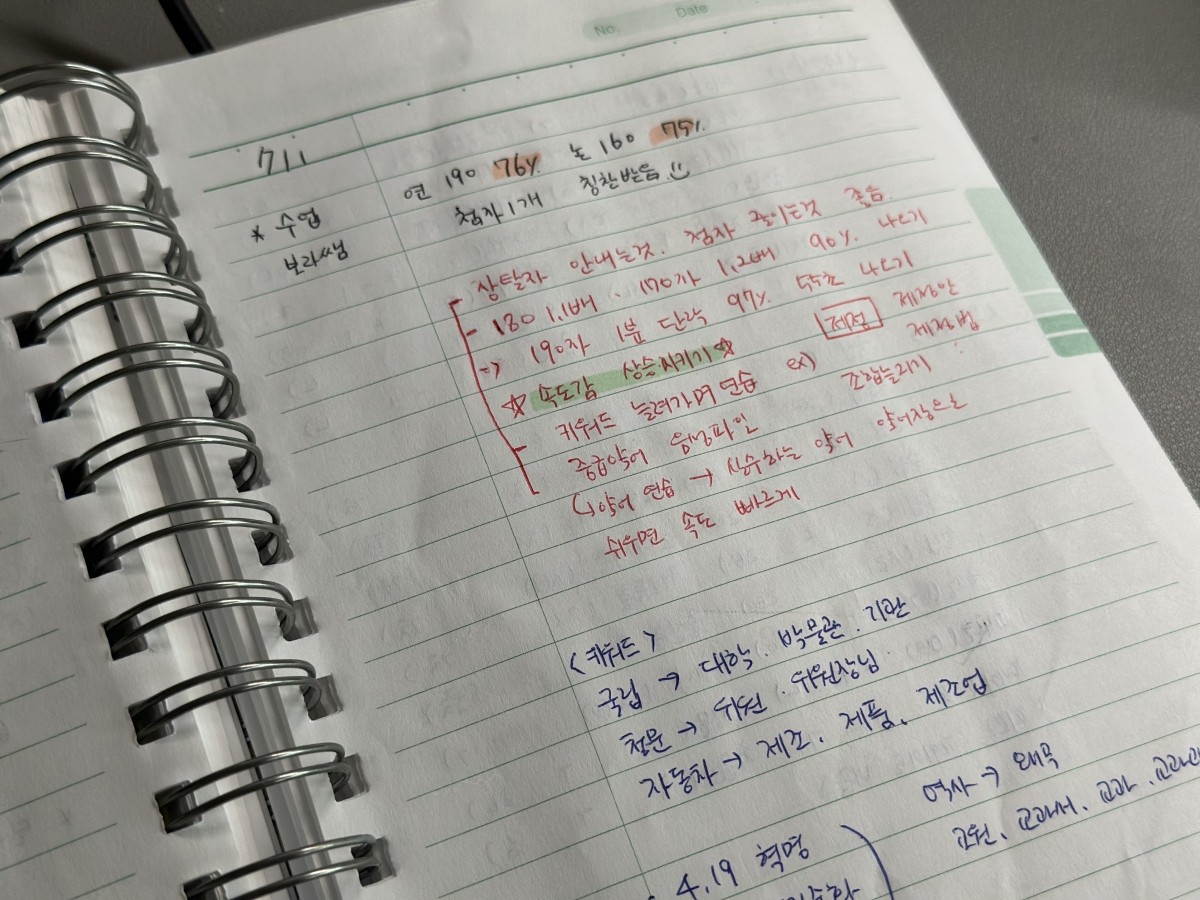 No. Date
711
연 190 76% 논 160 75%
* 수업
첨자 1개 칭찬받음
보라쌤
상탈자 안내는것. 첨자 줄이는것 좋음.
- 180 1.1배. 170자 1.2배 90% 나오기
-> 190자 1분 단락 97% 나오기
☆ 속도감 상승시키기 ☆
키워드 늘려가며 연습 ex) 제정 제정안
제정법
중급약어 조합늘리기
↳ 약어 연습 → 실수하는 약어 약어장으로
외우면 속도 빠르게
<키워드>
국립 → 대학. 박물관. 기관
전문 → 위원. 위원장님.
자동차 → 제조. 제품. 제조업
역사 → 왜곡
교원. 교과서. 교과.
4.19 혁명